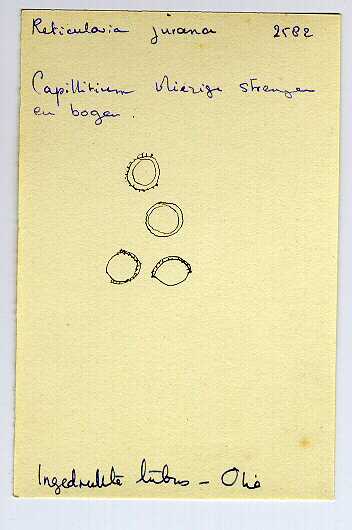 Reticularia jurana 2582
Capillitium vliezige strengen
en bogen.
Ingedrukte tubus - Olie